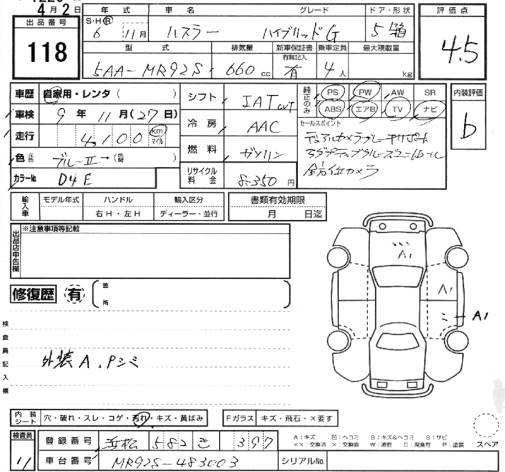 4月2日
出品番号
118
年式 車名 グレード ドア・形状
S・H・R 6年 11月 ハスラー ハイブリッドG 5 箱
型式 排気量 新車保証書 乗車定員 最大積載量
5AA-MR92S 660cc 有 4人 kg
評価点
4.5
車歴 自家用・レンタ( )
車検 9年11月(27日)
走行 4,100 km マイル
色 ブルーII→
カラーNo D4E
シフト IAT
冷房 AAC
燃料 ガソリン
リサイクル料金 8,350円
純正のみ PS PW AW SR
ABS エアB TV ナビ
内装評価
b
セールスポイント
デュアルカメラブレーキサポート
アダプティブクルーズコントロール
全方位カメラ
輸入車 モデル年式 ハンドル 輸入区分
右H・左H ディーラー・並行
書類有効期限
月 日迄
出品店申告欄
※注意事項等記載
修復歴 有 箇所
検査員記入欄
外装A、Pシミ
A1
A1
A1
内装シート 穴・破れ・スレ・コゲ・汚れ・キズ・黄ばみ Fガラス キズ・飛石・×要す
検査員 11
登録番号 浜松 582 き 397
車台番号 MR92S-483003 シリアルNo.
A:キズ 凹:ヘコミ B:キズ&ヘコミ S:サビ
××:交換済 ×:要交換 W:波打 C:腐食有 P:塗装
スペア